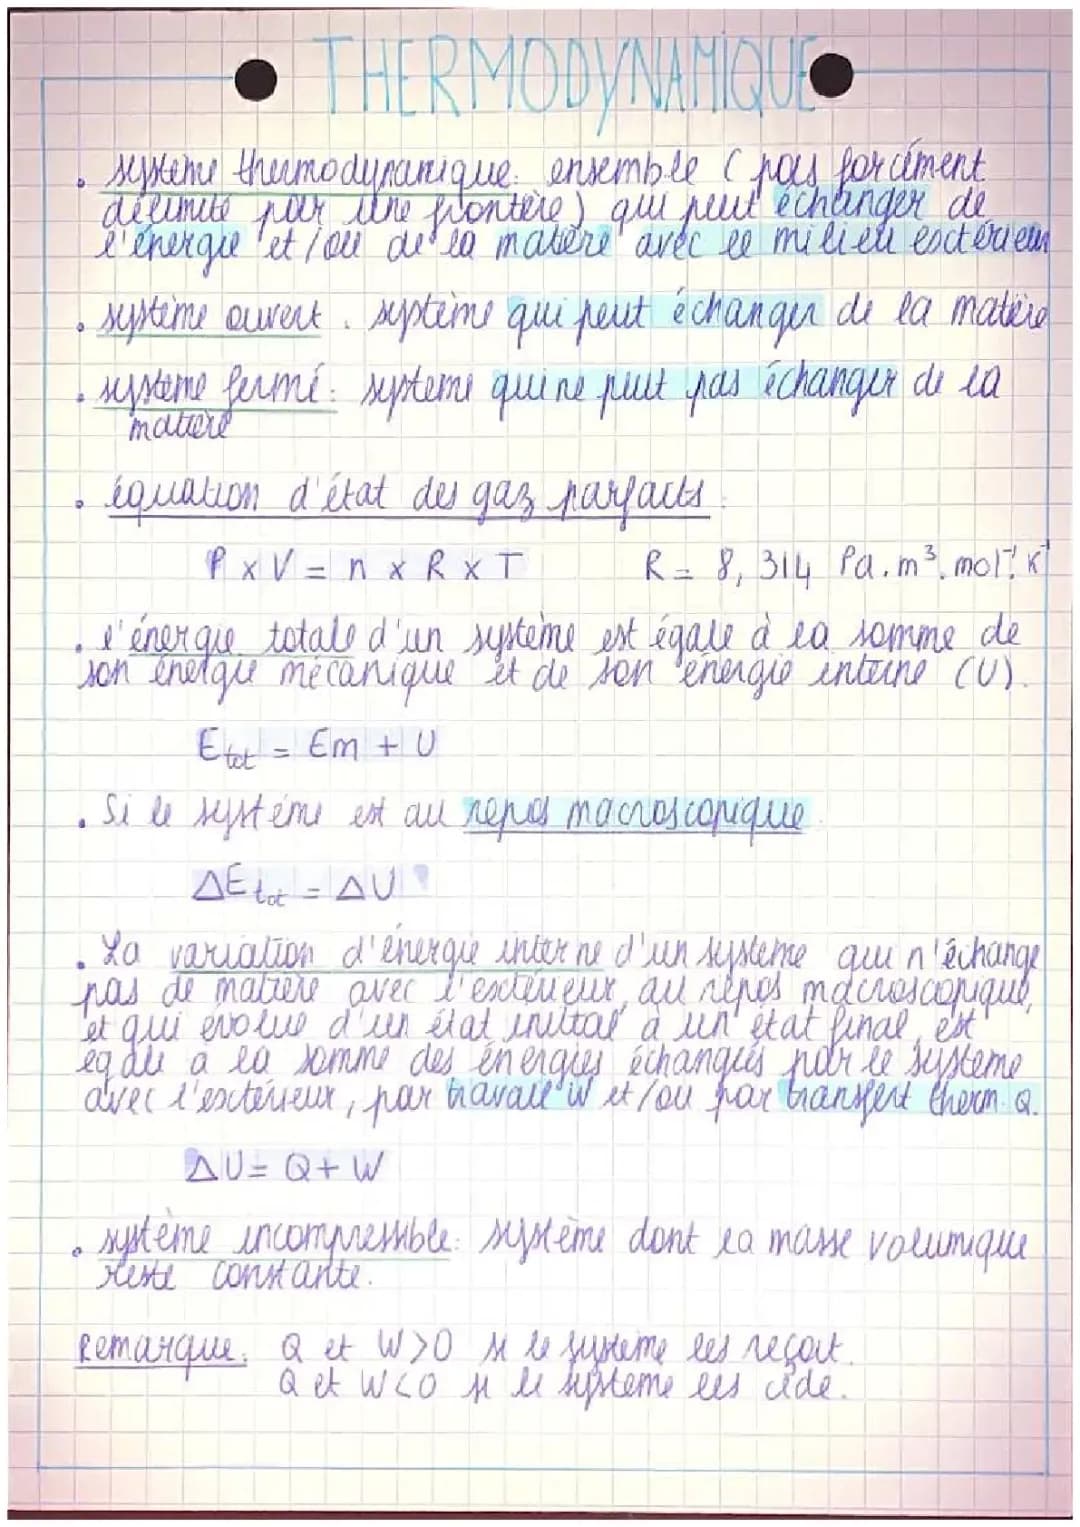 THERMODYNAMIQUE
• système thermodynamique: ensemble (pas forcément
délimité par une frontère) qui peut échanger de
l'énergie et/ou de la matière avec le milieu extérieur
• système ouvert: système qui peut échanger de la matière
• système fermé: système qui ne peut pas échanger de la
matière
• équation d'état des gaz parfaits:
P x V = n x R x T R = 8,314 Pa.m³.mol⁻¹.K⁻¹
• l'énergie totale d'un système est égale à la somme de
son énergie mécanique et de son énergie interne (U).
Etot = Em + U
• Si le système est au repos macroscopique:
ΔEtot = ΔU
• La variation d'énergie interne d'un système qui n'échange
pas de matière avec l'extérieur, au repos macroscopique,
et qui évolue d'un état initial à un état final, est
égale à la somme des énergies échangées par le système
avec l'extérieur, par travail W et/ou par transfert therm. Q.
ΔU = Q + W
• système incompressible: système dont la masse volumique
reste constante.
Remarque: Q et W>0 si le système les reçoit.
Q et W<0 si le système les cède.